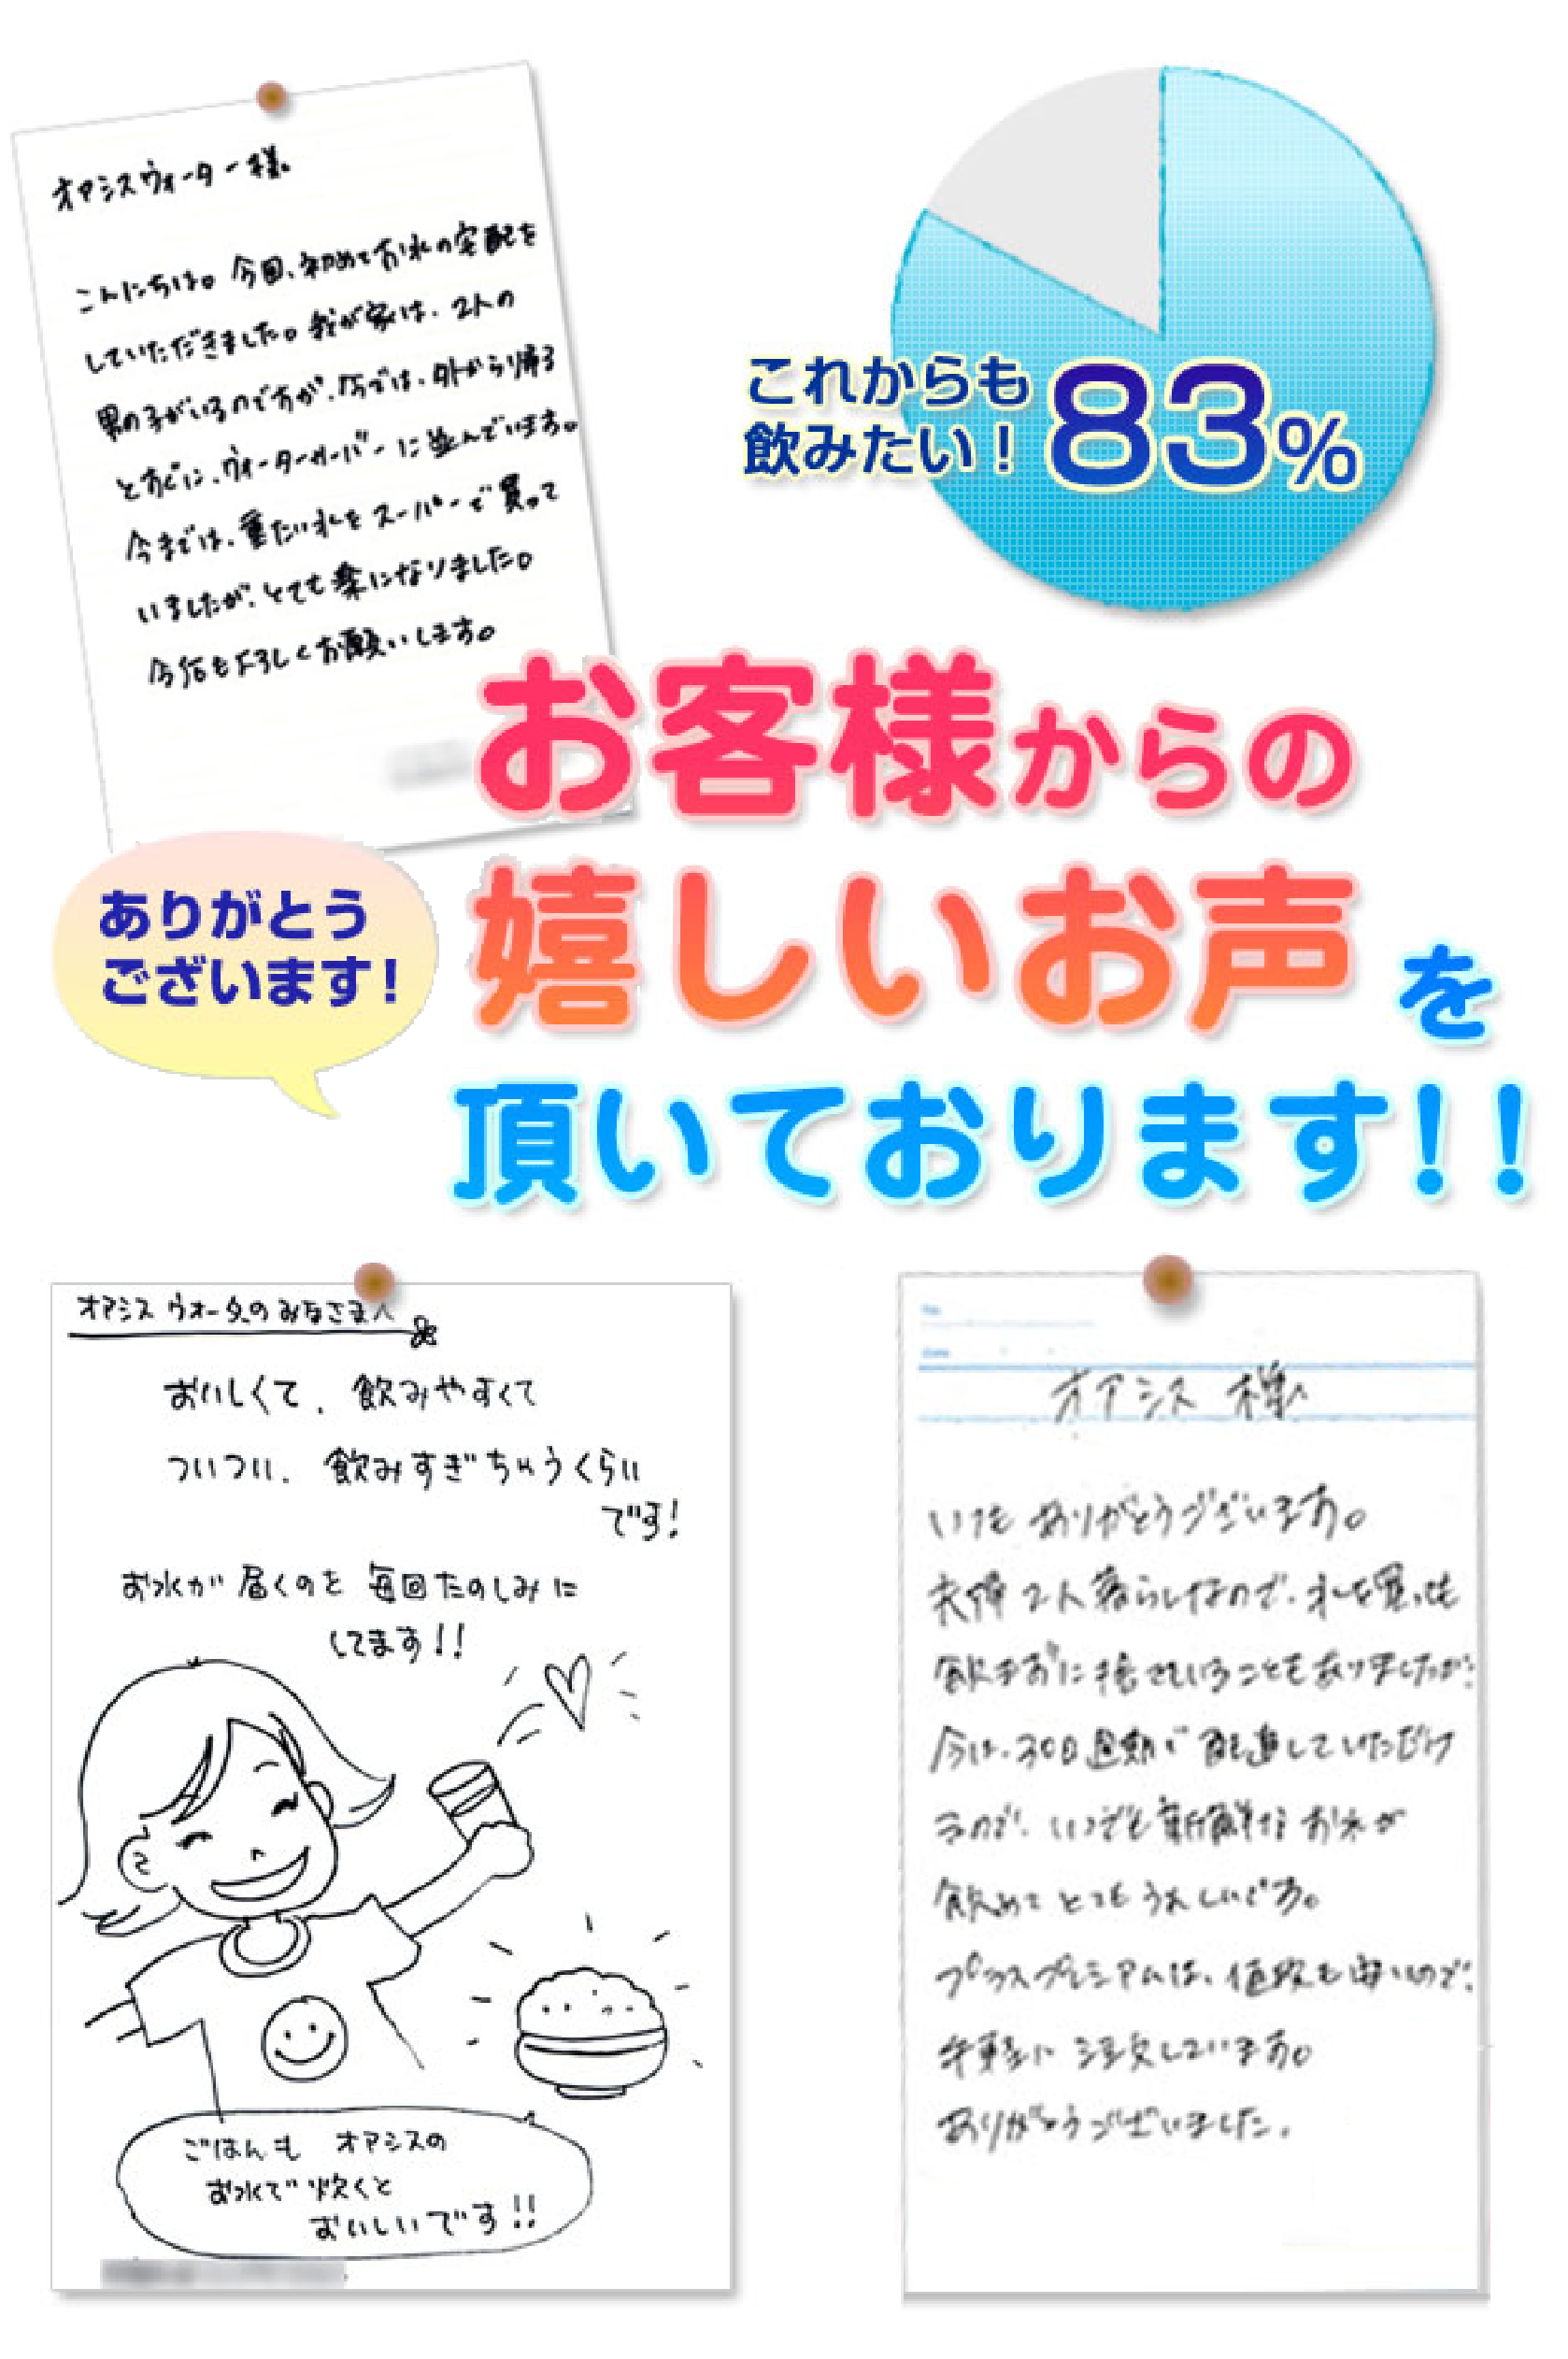 オアシスウォーター様
こんにちは。今回、初めてお水の宅配を
していただきました。我が家は、2人の
男の子がいるのですが、今では、外から帰る
とすぐに、ウォーターサーバーに並んでいます。
今までは、重たい水をスーパーで買って
いましたが、とても楽になりました。
今后もよろしくお願いします。
これからも
飲みたい!
83%
お客様からの
嬉しいお声を
頂いております!!
ありがとう
ございます!
オアシス ウォーターの みなさまへ
おいしくて、飲みやすくて
ついつい、飲みすぎちゃうくらい
です!
お水が 届くのを 毎回たのしみに
してます!!
ごはんも オアシスの
お水で 炊くと
おいしいです!!
オアシス 様
いつも ありがとうございます。
夫婦2人暮らしなので、水を買っても
飲まずに捨てていることもありましたが、
今は、30日周期で配達していただけ
るので、いつでも新鮮な お水が
飲めて とても うれしいです。
プラスプレミアムは、値段も安いので、
手軽に 注文しています。
ありがとうございました。